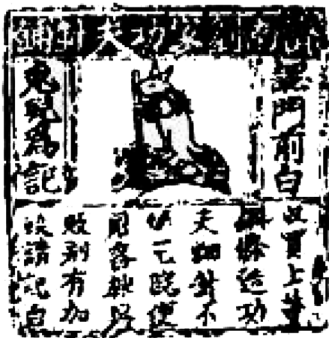 濟南劉家功夫針鋪
認門前白
兔兒爲記
收買上等
鋼條造功
夫細針不
宅院使
用客轉
販別有加
饒請記白